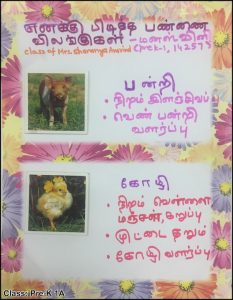 எனக்கு பிடித்த பண்ணை
விலங்குகள் - மனஸ்வின்
class of Mrs. Sharanya Aravind (Prek-1, 142575
பன்றி
• நிறம் இளஞ்சிவப்பு
• வெண் பன்றி
வளர்ப்பு
கோழி
• நிறம் வெள்ளை
மஞ்சள், கறுப்பு
• முட்டை தரும்
• கோழி வளர்ப்பு
Class: Pre-K 1A